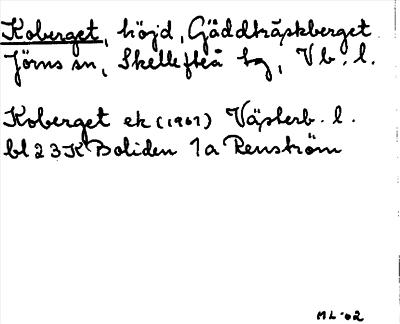 Koberget, höjd, Gäddträskberget
Jörns sn, Skellefteå tg, Vb. l.
Koberget ek (1961) Västerb. l.
bl 23K Boliden 1a Renström
ML-02